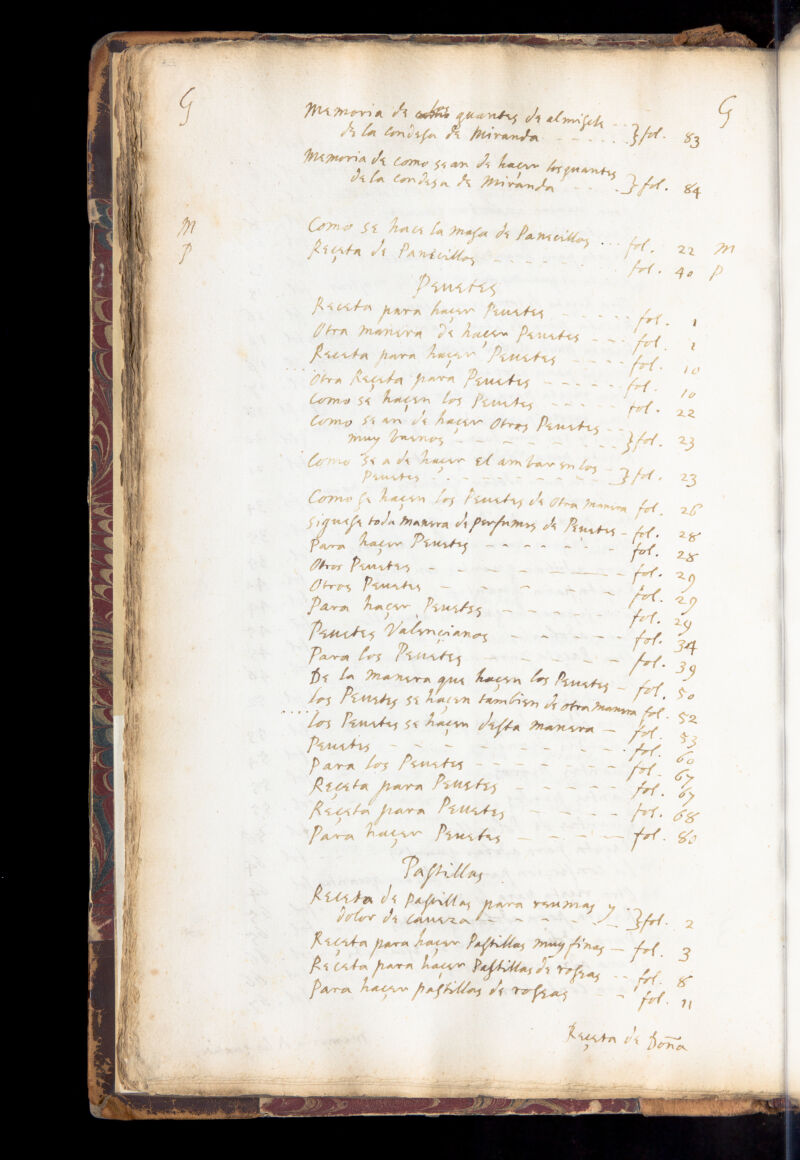 G G
Memoria de los guantes de almiscle - -
de la condesa de Miranda - - - - - - } fol. 83
Memoria de como se an de haçer los guantes
de la condesa de Miranda - - - - } fol. 84
Como se hace la masa de Panecillos ... fol. 22
M M
Reçeta de Panecillos - - - - - - fol. 40
P P
Peuetes
Receta para haçer Peuetes - - - - - - fol. 1
Otra manera de haçer Peuetes - - - fol. 1
Receta para haçer Peuetes - - - - fol. 10
Otra Reçeta para Peuetes - - - - - fol. 10
Como se haçen los Peuetes - - - - - fol. 22
Como se an de haçer Otros Peuetes - -
muy buenos - - - - - - - - } fol. 23
Como se a de haçer el ambar en los -
Peuetes - - - - - - - - - } fol. 23
Como se haçen los Peuetes de otra manera fol. 26
Siguese toda manera de perfumes de Peuetes - fol. 28
Para haçer Peuetes - - - - - - - fol. 28
Otros Peuetes - - - - - - - fol. 29
Otros Peuetes - - - - - - - fol. 29
Para haçer Peuetes - - - - - - fol. 29
Peuetes Valençianos - - - - - fol. 34
Para los Peuetes - - - - - - fol. 39
De la manera que haçen los Peuetes - fol. 50
Los Peuetes se haçen tambien de otra manera fol. 52
Los Peuetes se haçen desta manera - fol. 53
Peuetes - - - - - - - - - fol. 60
Para los Peuetes - - - - - - fol. 67
Reçeta para Peuetes - - - - - fol. 67
Reçeta para Peuetes - - - - - fol. 68
Para haçer Peuetes - - - - - fol. 80
Pastillas
Receta de Pastillas para reumas y
dolor de caueza - - - - - - - } fol. 2
Reçeta para haçer Pastillas muy finas - fol. 3
Reçeta para haçer Pastillas de rosas - - fol. 8
Para haçer pastillas de rosas - fol. 11
Reçeta de Doña